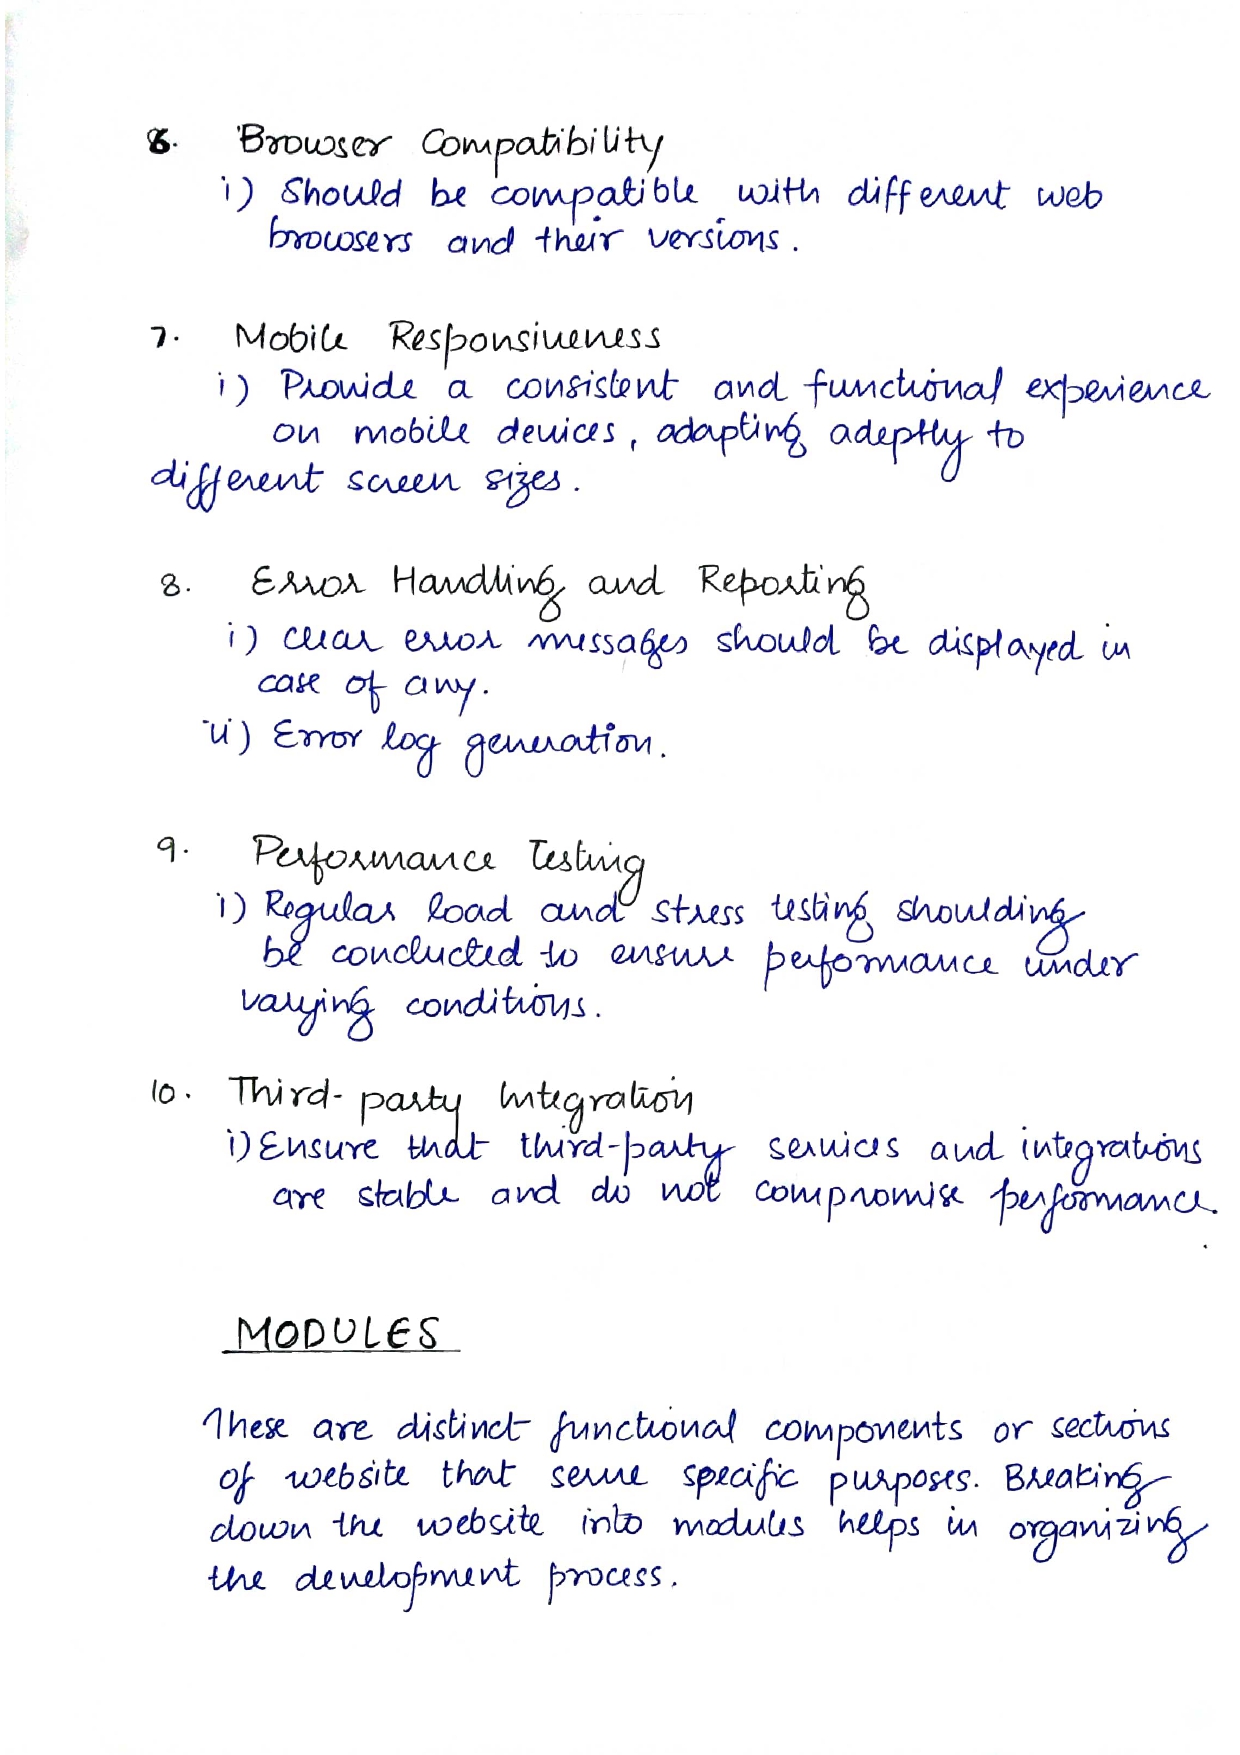 6. Browser Compatibility
i) Should be compatible with different web
browsers and their versions.
7. Mobile Responsiveness
i) Provide a consistent and functional experience
on mobile devices, adapting adeptly to
different screen sizes.
8. Error Handling and Reporting
i) Clear error messages should be displayed in
case of any.
ii) Error log generation.
9. Performance Testing
i) Regular load and stress testing shoulding
be conducted to ensure performance under
varying conditions.
10. Third-party Integration
i) Ensure that third-party services and integrations
are stable and do not compromise performance.
MODULES
These are distinct functional components or sections
of website that serve specific purposes. Breaking
down the website into modules helps in organizing
the development process.